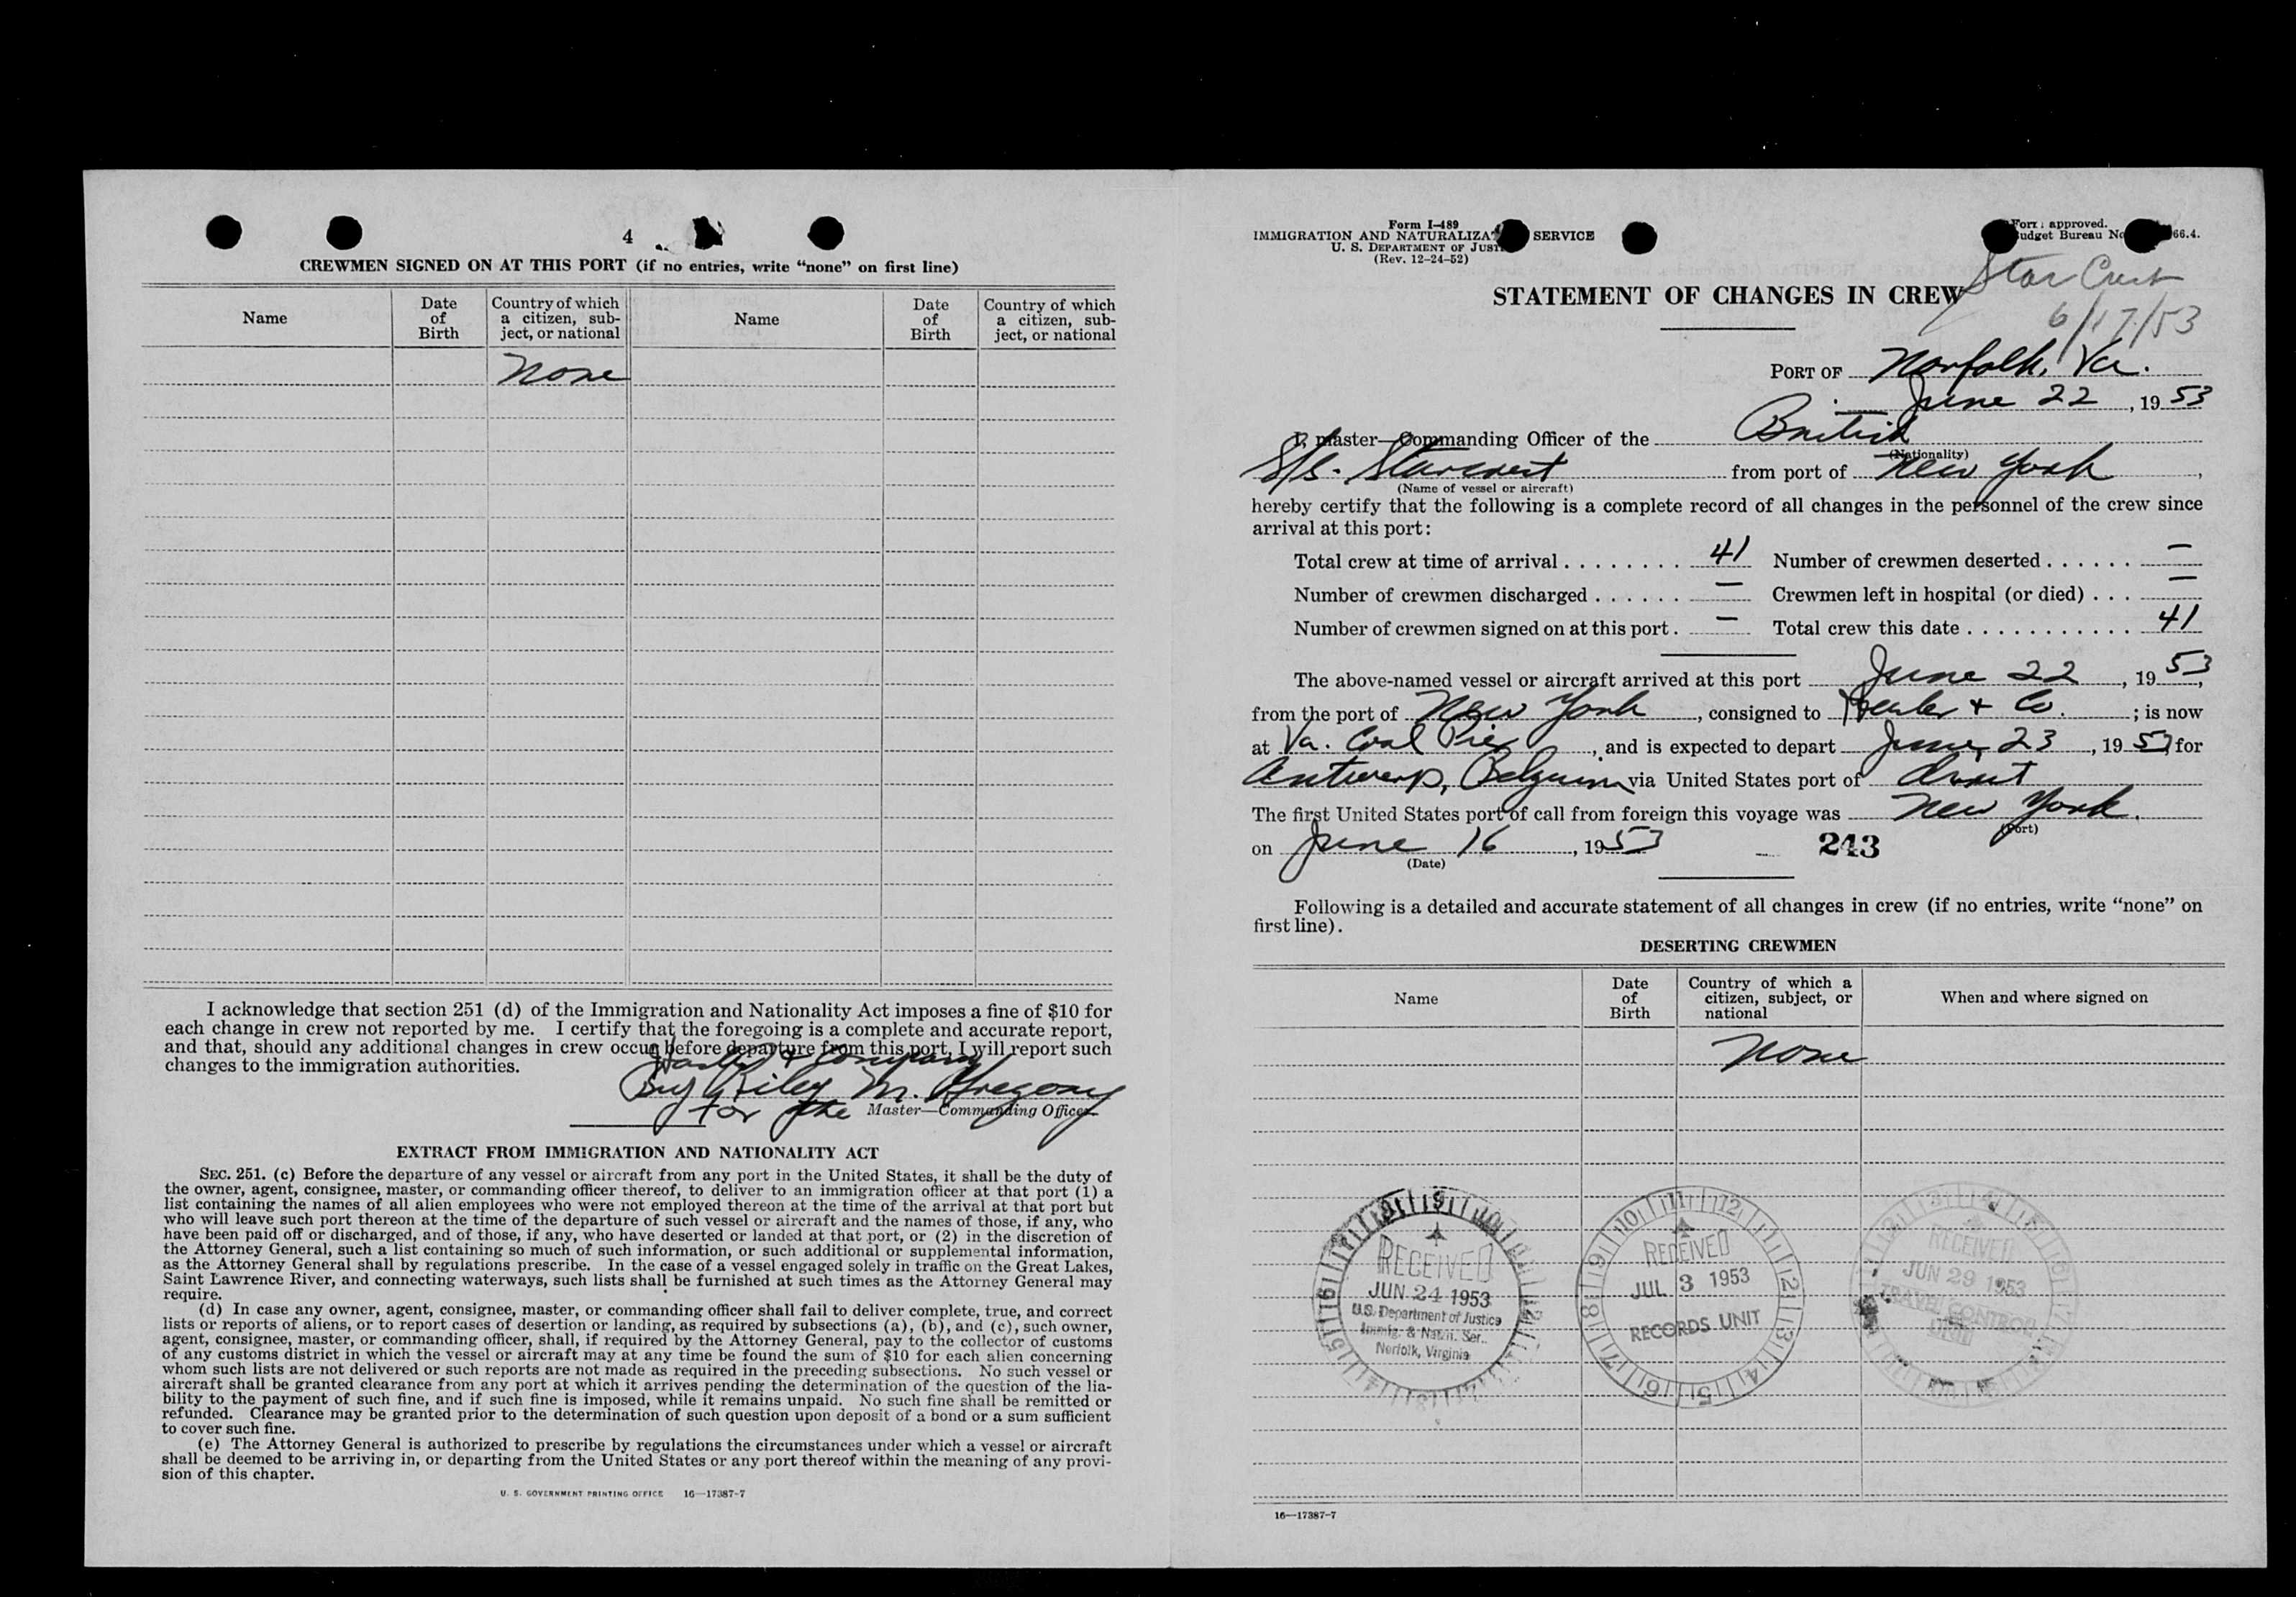 4
CREWMEN SIGNED ON AT THIS PORT (if no entries, write "none" on first line)
Name
Date of Birth
Country of which a citizen, sub-ject, or national
Name
Date of Birth
Country of which a citizen, sub-ject, or national
None
I acknowledge that section 251 (d) of the Immigration and Nationality Act imposes a fine of $10 for
each change in crew not reported by me. I certify that the foregoing is a complete and accurate report,
and that, should any additional changes in crew occur before departure from this port, I will report such
changes to the immigration authorities.
& Company
By Riley M. Gregory
for the Master—Commanding Officer
EXTRACT FROM IMMIGRATION AND NATIONALITY ACT
SEC. 251. (c) Before the departure of any vessel or aircraft from any port in the United States, it shall be the duty of
the owner, agent, consignee, master, or commanding officer thereof, to deliver to an immigration officer at that port (1) a
list containing the names of all alien employees who were not employed thereon at the time of the arrival at that port but
who will leave such port thereon at the time of the departure of such vessel or aircraft and the names of those, if any, who
have been paid off or discharged, and of those, if any, who have deserted or landed at that port, or (2) in the discretion of
the Attorney General, such a list containing so much of such information, or such additional or supplemental information,
as the Attorney General shall by regulations prescribe. In the case of a vessel engaged solely in traffic on the Great Lakes,
Saint Lawrence River, and connecting waterways, such lists shall be furnished at such times as the Attorney General may
require.
(d) In case any owner, agent, consignee, master, or commanding officer shall fail to deliver complete, true, and correct
lists or reports of aliens, or to report cases of desertion or landing, as required by subsections (a), (b), and (c), such owner,
agent, consignee, master, or commanding officer, shall, if required by the Attorney General, pay to the collector of customs
of any customs district in which the vessel or aircraft may at any time be found the sum of $10 for each alien concerning
whom such lists are not delivered or such reports are not made as required in the preceding subsections. No such vessel or
aircraft shall be granted clearance from any port at which it arrives pending the determination of the question of the lia-
bility to the payment of such fine, and if such fine is imposed, while it remains unpaid. No such fine shall be remitted or
refunded. Clearance may be granted prior to the determination of such question upon deposit of a bond or a sum sufficient
to cover such fine.
(e) The Attorney General is authorized to prescribe by regulations the circumstances under which a vessel or aircraft
shall be deemed to be arriving in, or departing from the United States or any port thereof within the meaning of any provi-
sion of this chapter.
U. S. GOVERNMENT PRINTING OFFICE 16—17387-7
Form I-489
IMMIGRATION AND NATURALIZAT SERVICE
U. S. DEPARTMENT OF JUST
(Rev. 12-24-52)
Form approved.
Budget Bureau No. 66.4.
Star Crest
6/17/53
STATEMENT OF CHANGES IN CREW
PORT OF Norfolk, Va.
June 22, 1953
I, master—Commanding Officer of the British
(Nationality)
S/S. Starcrest from port of New York,
(Name of vessel or aircraft)
hereby certify that the following is a complete record of all changes in the personnel of the crew since
arrival at this port:
Total crew at time of arrival . . . . . . . . 41 Number of crewmen deserted . . . . . . —
Number of crewmen discharged . . . . . . — Crewmen left in hospital (or died) . . . —
Number of crewmen signed on at this port . — Total crew this date . . . . . . . . . . . . 41
The above-named vessel or aircraft arrived at this port June 22, 1953,
from the port of New York, consigned to & Co.; is now
at Va. Coal Pier, and is expected to depart June 23, 1953, for
Antwerp, Belgium via United States port of direct
The first United States port of call from foreign this voyage was New York.
(Port)
on June 16, 1953 243
(Date)
Following is a detailed and accurate statement of all changes in crew (if no entries, write "none" on
first line).
DESERTING CREWMEN
Name
Date of Birth
Country of which a citizen, subject, or national
When and where signed on
None
RECEIVED
JUN 24 1953
U.S. Department of Justice
Immig. & Natzn. Ser.
Norfolk, Virginia
RECEIVED
JUL 3 1953
RECORDS UNIT
RECEIVED
JUN 29 1953
TRAVEL CONTROL
UNIT
16—17387-7